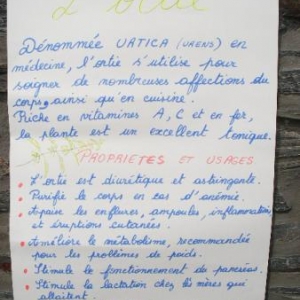 L'ortie
Dénommée URTICA (URENS) en
médecine, l'ortie s'utilise pour
soigner de nombreuses affections du
corps, ainsi qu'en cuisine.
Riche en vitamines A, C et en fer,
la plante est un excellent tonique.
PROPRIETES ET USAGES
• L'ortie est diurétique et astringente.
• Purifie le corps en cas d'anémie.
• Apaise les enflures, ampoules, inflammations
et éruptions cutanées.
• Améliore le métabolisme, recommandée
pour les problèmes de poids.
• Stimule le fonctionnement du pancréas.
• Stimule la lactation chez les mères qui
allaitent.